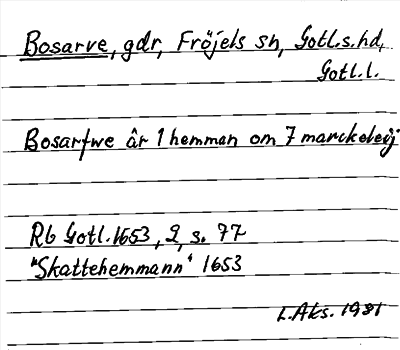 Bosarve, gdr, Fröjels sn, Gotl.s.hd,
Gotl.l.
Bosarfwe är 1 hemman om 7 marckeleij
Rb Gotl. 1653, 2, s. 77
"Skattehemmann" 1653
L.Aks. 1981